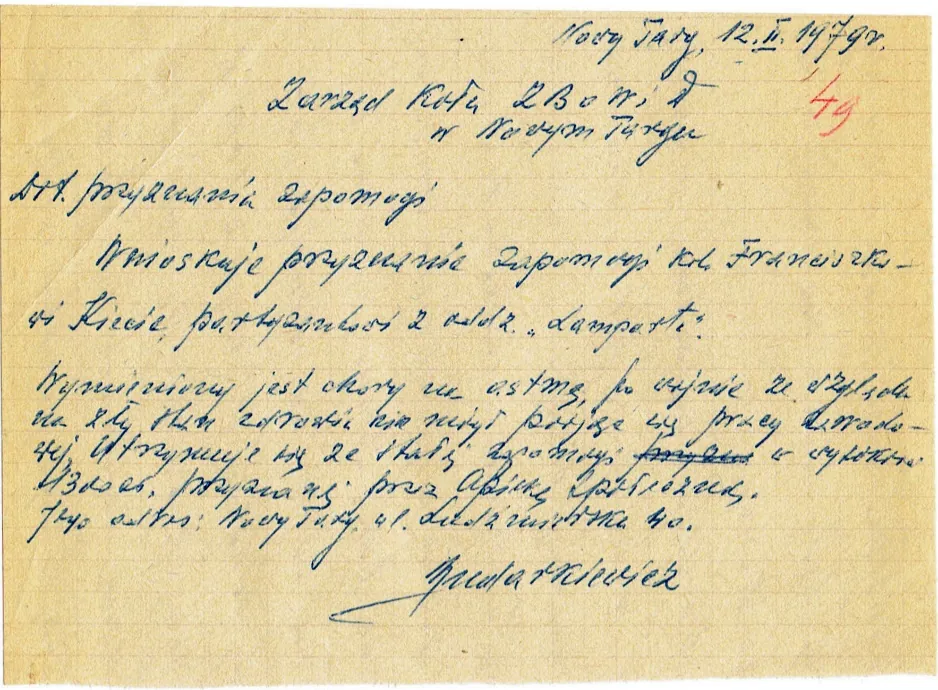 Nowy Targ, 12.II.1979r.
49
Zarząd Koła ZBoWiD
w Nowym Targu
Dot. przyznania zapomogi
Wnioskuje przyznanie zapomogi kol. Franciszko-
wi Kiecie, partyzantowi z oddz. „Lamparta".
Wymieniony jest chory na astmę, po wojnie ze względu
na zły stan zdrowia nie mógł podjąć się pracy zawodo-
wej, Utrzymuje się ze stałej zapomogi w wysokości
przyznanej przez Opiekę społeczną.
Jego adres: Nowy Targ, ul. Ludźmierska 40.